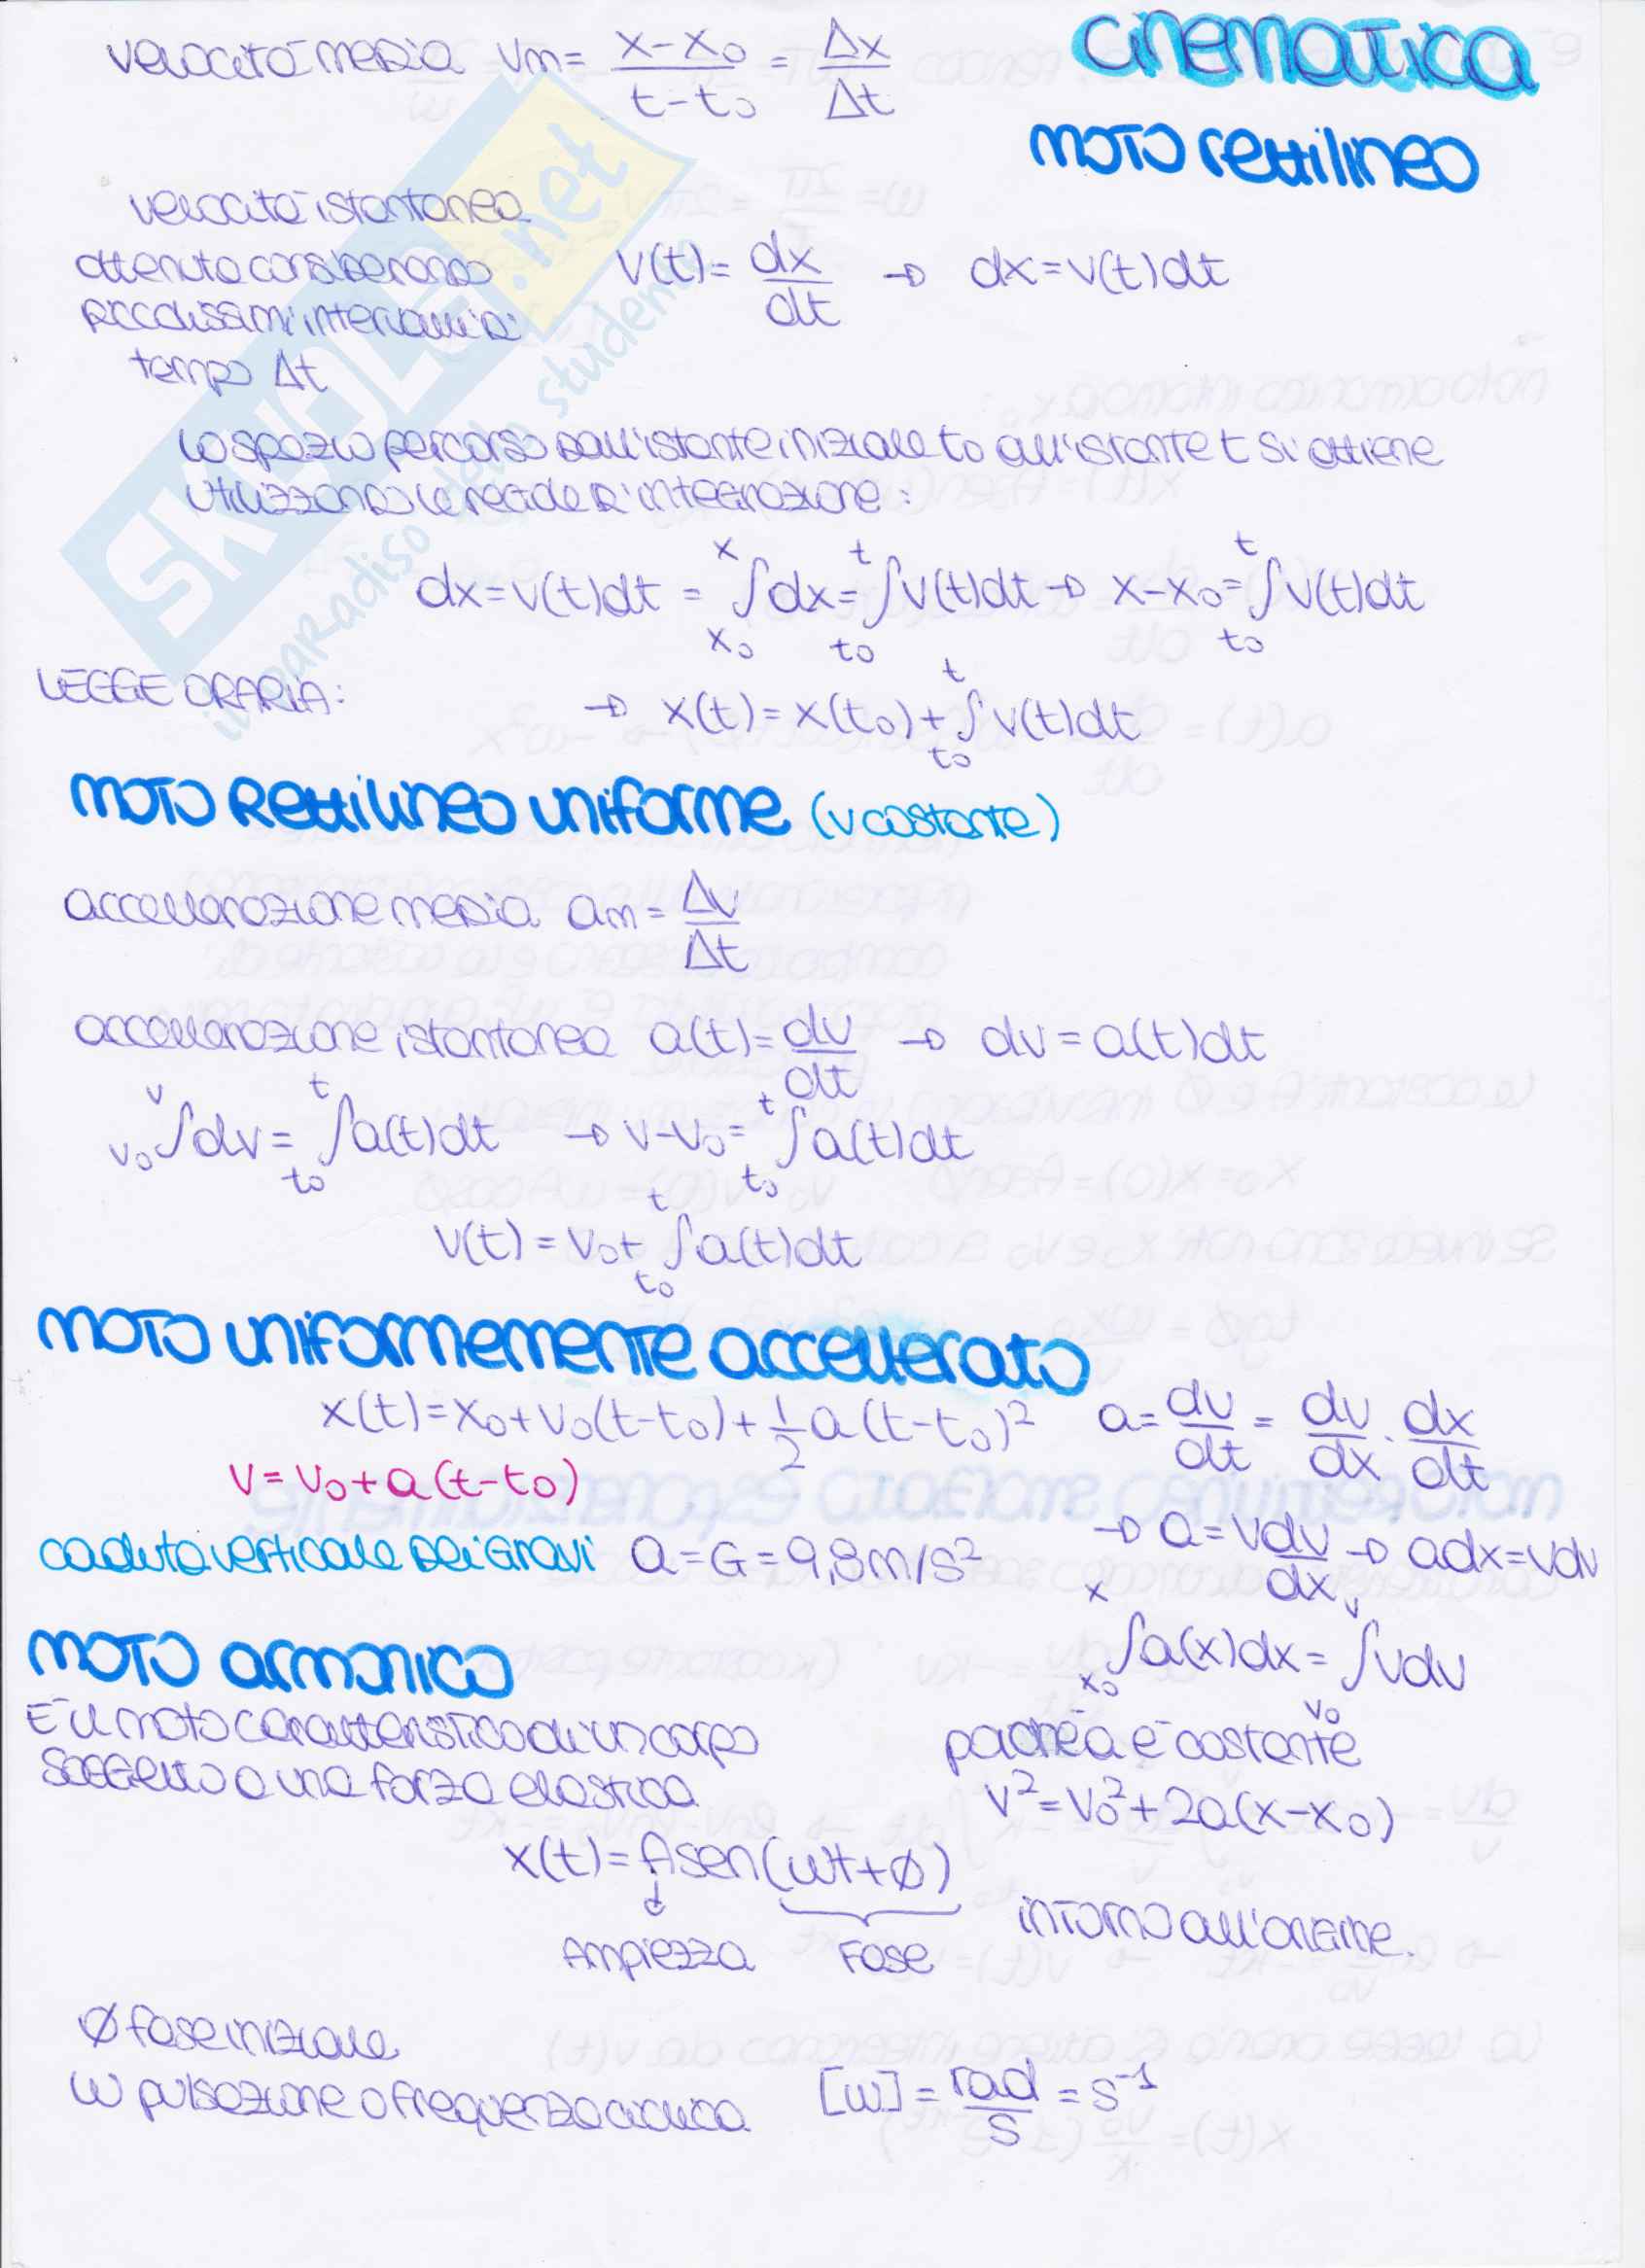 cinematica
moto rettilineo
velocità media Vm = x-x₀ / t-t₀ = Δx / Δt
velocità istantanea
ottenuta considerando
piccolissimi intervalli di
tempo Δt
v(t) = dx/dt → dx = v(t)dt
lo spazio percorso dall'istante iniziale t₀ all'istante t si ottiene
utilizzando le regole d'integrazione:
dx = v(t)dt = ∫ₓ₀ˣ dx = ∫ₜ₀ᵗ v(t)dt → x-x₀ = ∫ₜ₀ᵗ v(t)dt
LEGGE ORARIA: → x(t) = x(t₀) + ∫ₜ₀ᵗ v(t)dt
moto rettilineo uniforme (v costante)
accellerazione media am = Δv / Δt
accellerazione istantanea a(t) = dv/dt → dv = a(t)dt
∫ᵥ₀ᵛ dv = ∫ₜ₀ᵗ a(t)dt → v-v₀ = ∫ₜ₀ᵗ a(t)dt
v(t) = v₀ + ∫ₜ₀ᵗ a(t)dt
moto uniformemente accellerato
x(t) = x₀ + v₀(t-t₀) + 1/2 a (t-t₀)²
v = v₀ + a(t-t₀)
a = dv/dt = dv/dx · dx/dt
→ a = v dv/dx → adx = vdv
∫ₓ₀ˣ a(x)dx = ∫ᵥ₀ᵛ vdv
poiché a è costante
v² = v₀² + 2a(x-x₀)
caduta verticale dei gravi a = G = 9,8 m/s²
moto armonico
È il moto caratteristico di un corpo
soggetto a una forza elastica
x(t) = A sen(ωt+ϕ) intorno all'origine.
Ampiezza Fase
ϕ fase iniziale
ω pulsazione o frequenza ciclica [ω] = rad/s = s⁻¹
SKUOLA.net
il paradiso dello studente